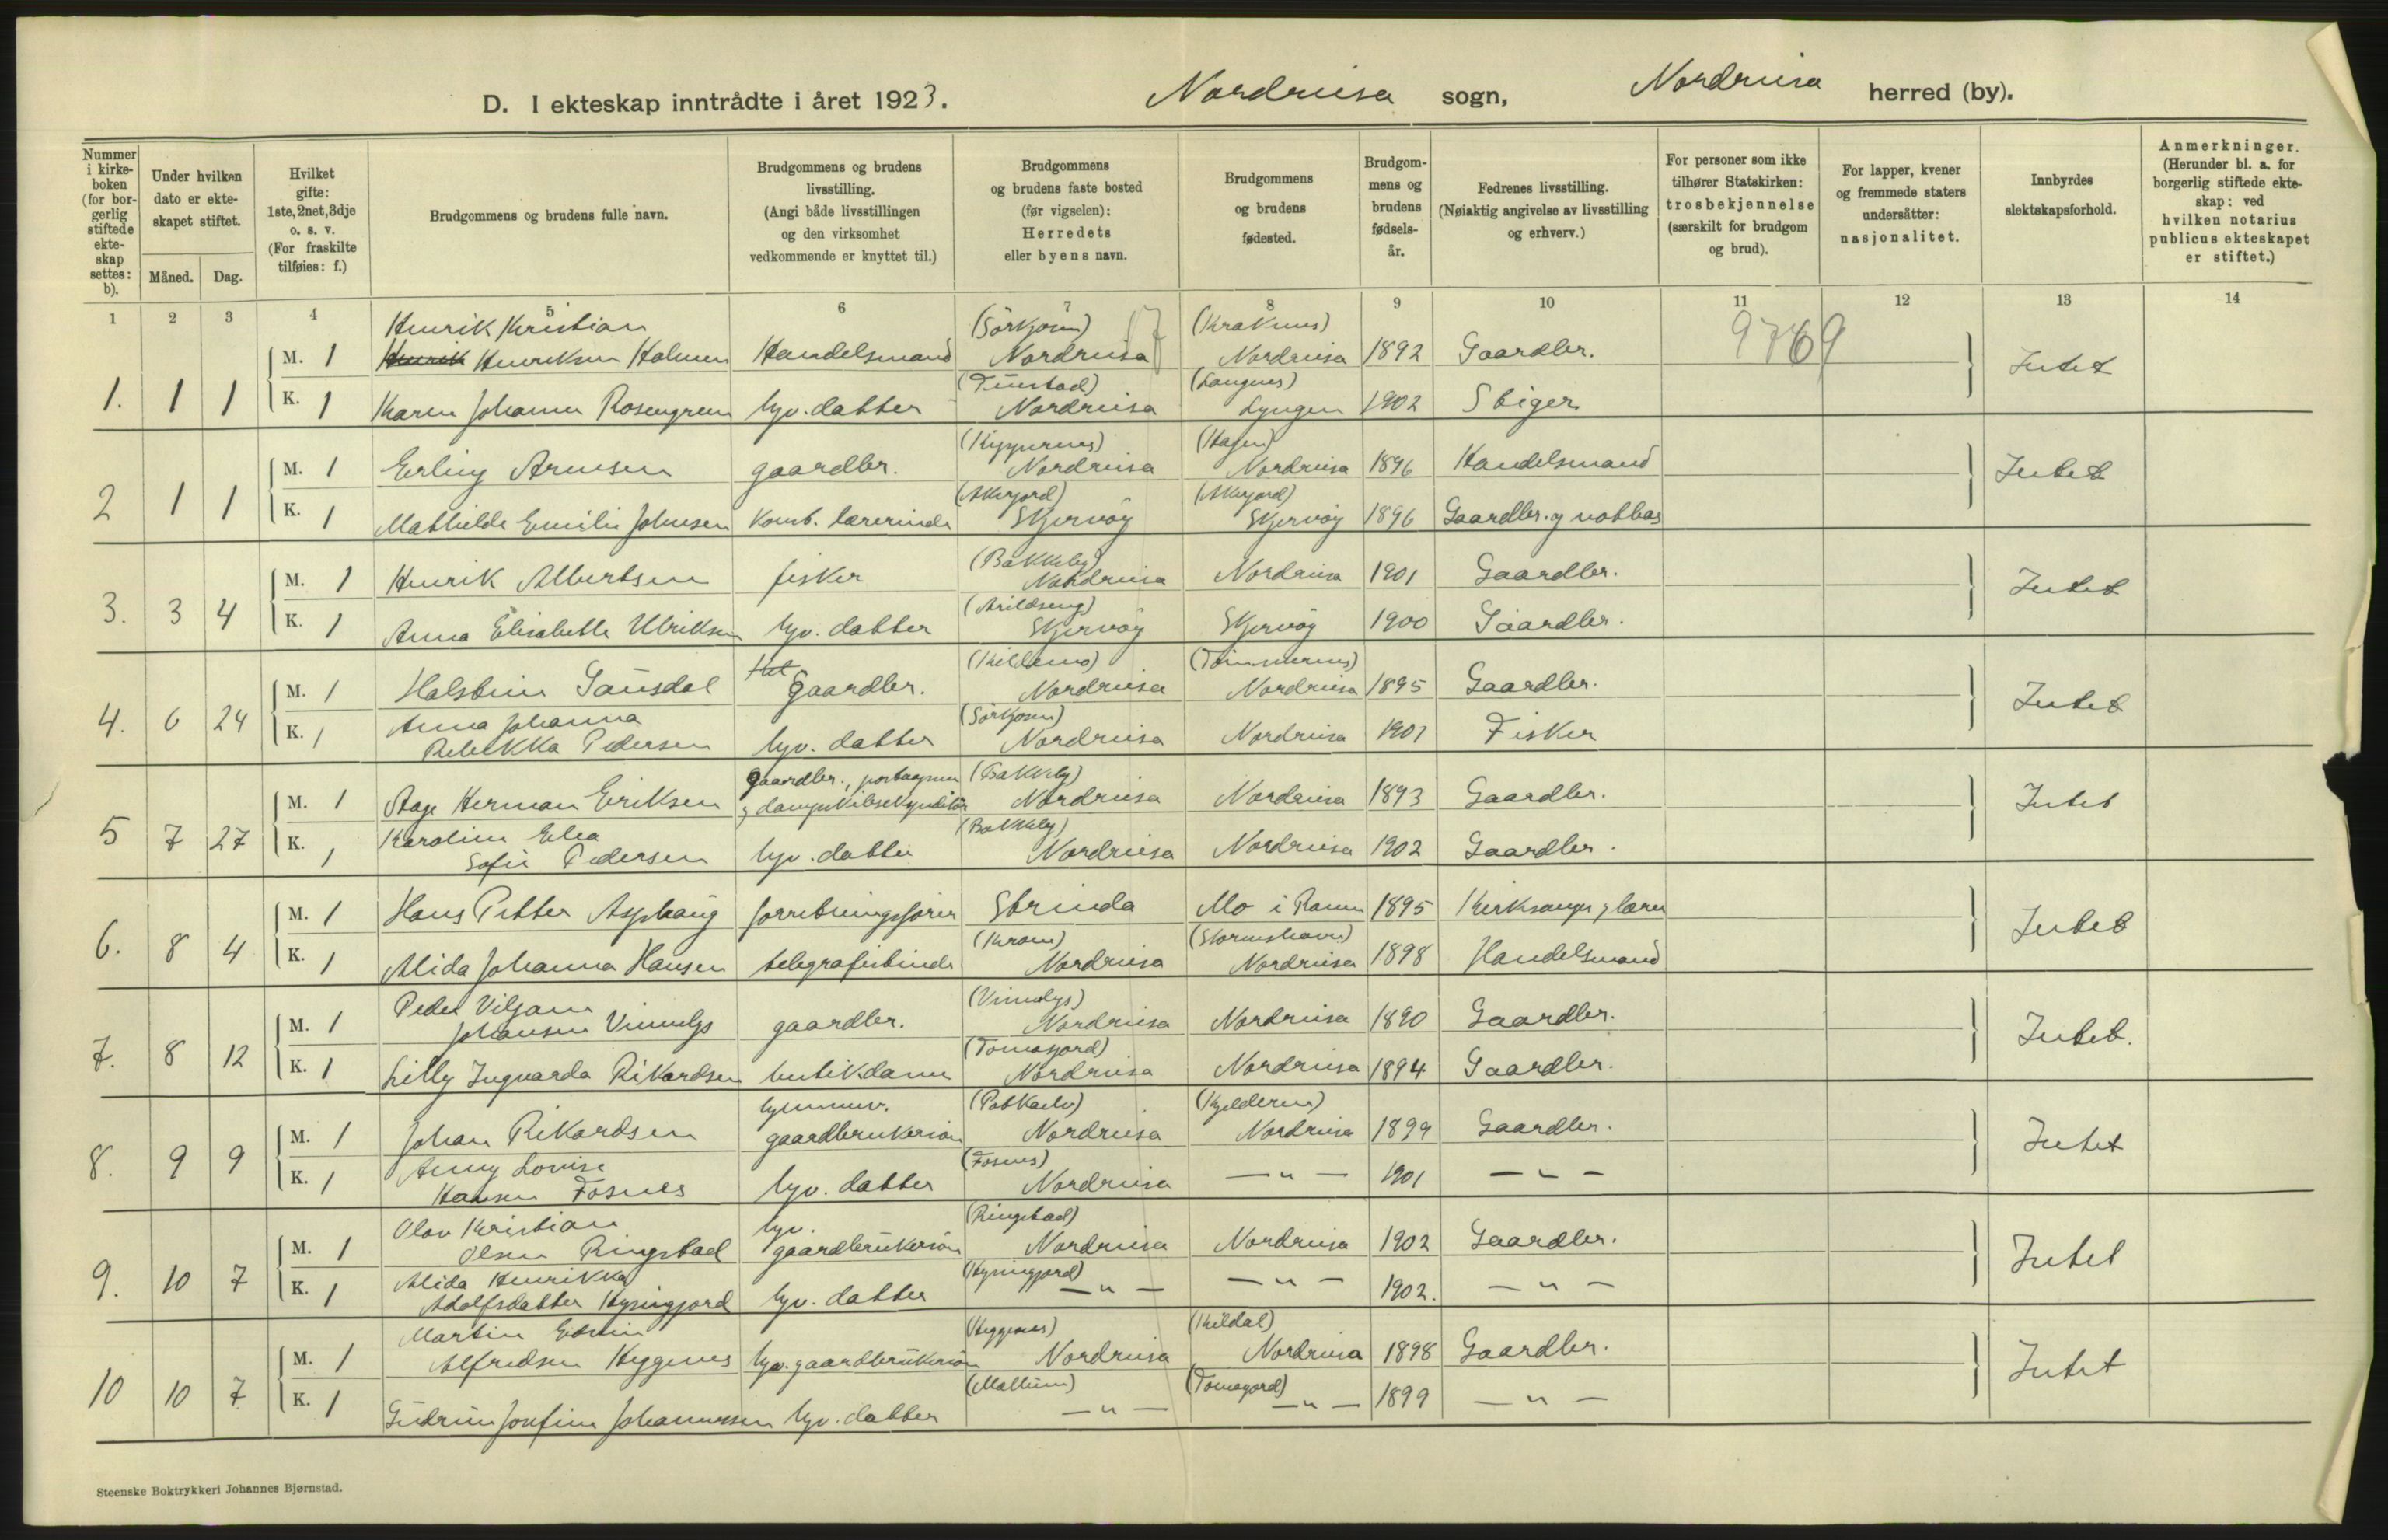 D. I ekteskap inntrådte i året 1923. Nordreisa sogn, Nordreisa herred (by).
Nummer i kirkeboken (for borgerlig stiftede ekteskap settes: b).
Under hvilken dato er ekteskapet stiftet.
Måned. Dag.
Hvilket gifte: 1ste, 2net, 3dje o. s. v. (For fraskilte tilføies: f.)
Brudgommens og brudens fulle navn.
Brudgommens og brudens livsstilling. (Angi både livsstillingen og den virksomhet vedkommende er knyttet til.)
Brudgommens og brudens faste bosted (før vigselen): Herredets eller byens navn.
Brudgommens og brudens fødested.
Brudgommens og brudens fødselsår.
Fedrenes livsstilling. (Nøiaktig angivelse av livsstilling og erhverv.)
For personer som ikke tilhører Statskirken: trosbekjennelse (særskilt for brudgom og brud).
For lapper, kvener og fremmede staters undersåtter: nasjonalitet.
Innbyrdes slektskapsforhold.
Anmerkninger. (Herunder bl. a. for borgerlig stiftede ekteskap: ved hvilken notarius publicus ekteskapet er stiftet.)
1 2 3 4 5 6 7 8 9 10 11 12 13 14
Henrik Kristian (Sörkjosen) (Kraknes) 9769
M. 1 Henrik Henriksen Holmen Handelsmand Nordreisa Nordreisa 1892 Gaardbr. Intet
(Tunstad) (Langnes)
1. 1 1 K. 1 Karen Johanna Rosengren hjv. datter Nordreisa Lyngen 1902 Stiger
(Kippernes) (Hagen)
M. 1 Erling Arnesen gaardbr. Nordreisa Nordreisa 1896 Handelsmand Intet
(Akerjord) (Akerjord)
2 1 1 K. 1 Mathilde Emilie Johnsen Komb. lærerinde Skjervöy Skjervöy 1896 Gaardbr. og notbas
(Bakkeby)
M. 1 Henrik Albertsen fisker Nordreisa Nordreisa 1901 Gaardbr. Intet
(Arildseng)
3. 3 4 K. 1 Anna Elisabeth Ulriksen hjv. datter Skjervöy Skjervöy 1900 Gaardbr.
(Kildemo) (Tömmernes)
M. 1 Halstein Gausdal gaardbr. Nordreisa Nordreisa 1895 Gaardbr. Intet
Anna Johanna (Sörkjosen)
4. 6 24 K. 1 Rebekka Pedersen hjv. datter Nordreisa Nordreisa 1901 Fisker
gaardbr., postaapner (Bakkeby)
M. 1 Aage Herman Eriksen og dampskibsekspeditör Nordreisa Nordreisa 1893 Gaardbr. Intet
Karoline Elea (Bakkeby)
5 7 27 K. 1 Sofie Pedersen hjv. datter Nordreisa Nordreisa 1902 Gaardbr.
M. 1 Hans Petter Asphaug forretningsförer Strinda Mo i Ranen 1895 Kirksanger og lærer Intet
(Kroen) (Storneshavn)
6. 8 4 K. 1 Alida Johanna Hansen telegrafistinde Nordreisa Nordreisa 1898 Handelsmand
Peder Viljam (Vinnelys)
M. 1 Johansen Vinnelys gaardbr. Nordreisa Nordreisa 1890 Gaardbr. Intet.
(Tomasjord)
7. 8 12 K. 1 Lilly Ingvarda Rikardsen butikdame Nordreisa Nordreisa 1894 Gaardbr.
hjemmev. (Potkaelv) (Kjelderen)
M. 1 Johan Rikardsen gaardbrukersön Nordreisa Nordreisa 1899 Gaardbr. Intet
Anny Lovise (Fosnes)
8. 9 9 K. 1 Hansen Fosnes hjv. datter Nordreisa — " — 1901 — " —
Olav Kristian hjv. (Ringstad)
M. 1 Olsen Ringstad gaardbrukersön Nordreisa Nordreisa 1902 Gaardbr. Intet
Alida Henrikka (Hysingjord)
9. 10 7 K. 1 Adolfsdatter Hysingjord hjv. datter — " — — " — 1902. — " —
Martin Edvin (Heggenes) (Kildal)
M. 1 Alfredsen Heggenes hjv. gaardbrukersön Nordreisa Nordreisa 1898 Gaardbr. Intet
(Mellem) (Tomasjord)
10 10 7 K. 1 Gudrun Josefine Johannessen hjv. datter — " — — " — 1899 — " —
Steenske Boktrykkeri Johannes Bjørnstad.